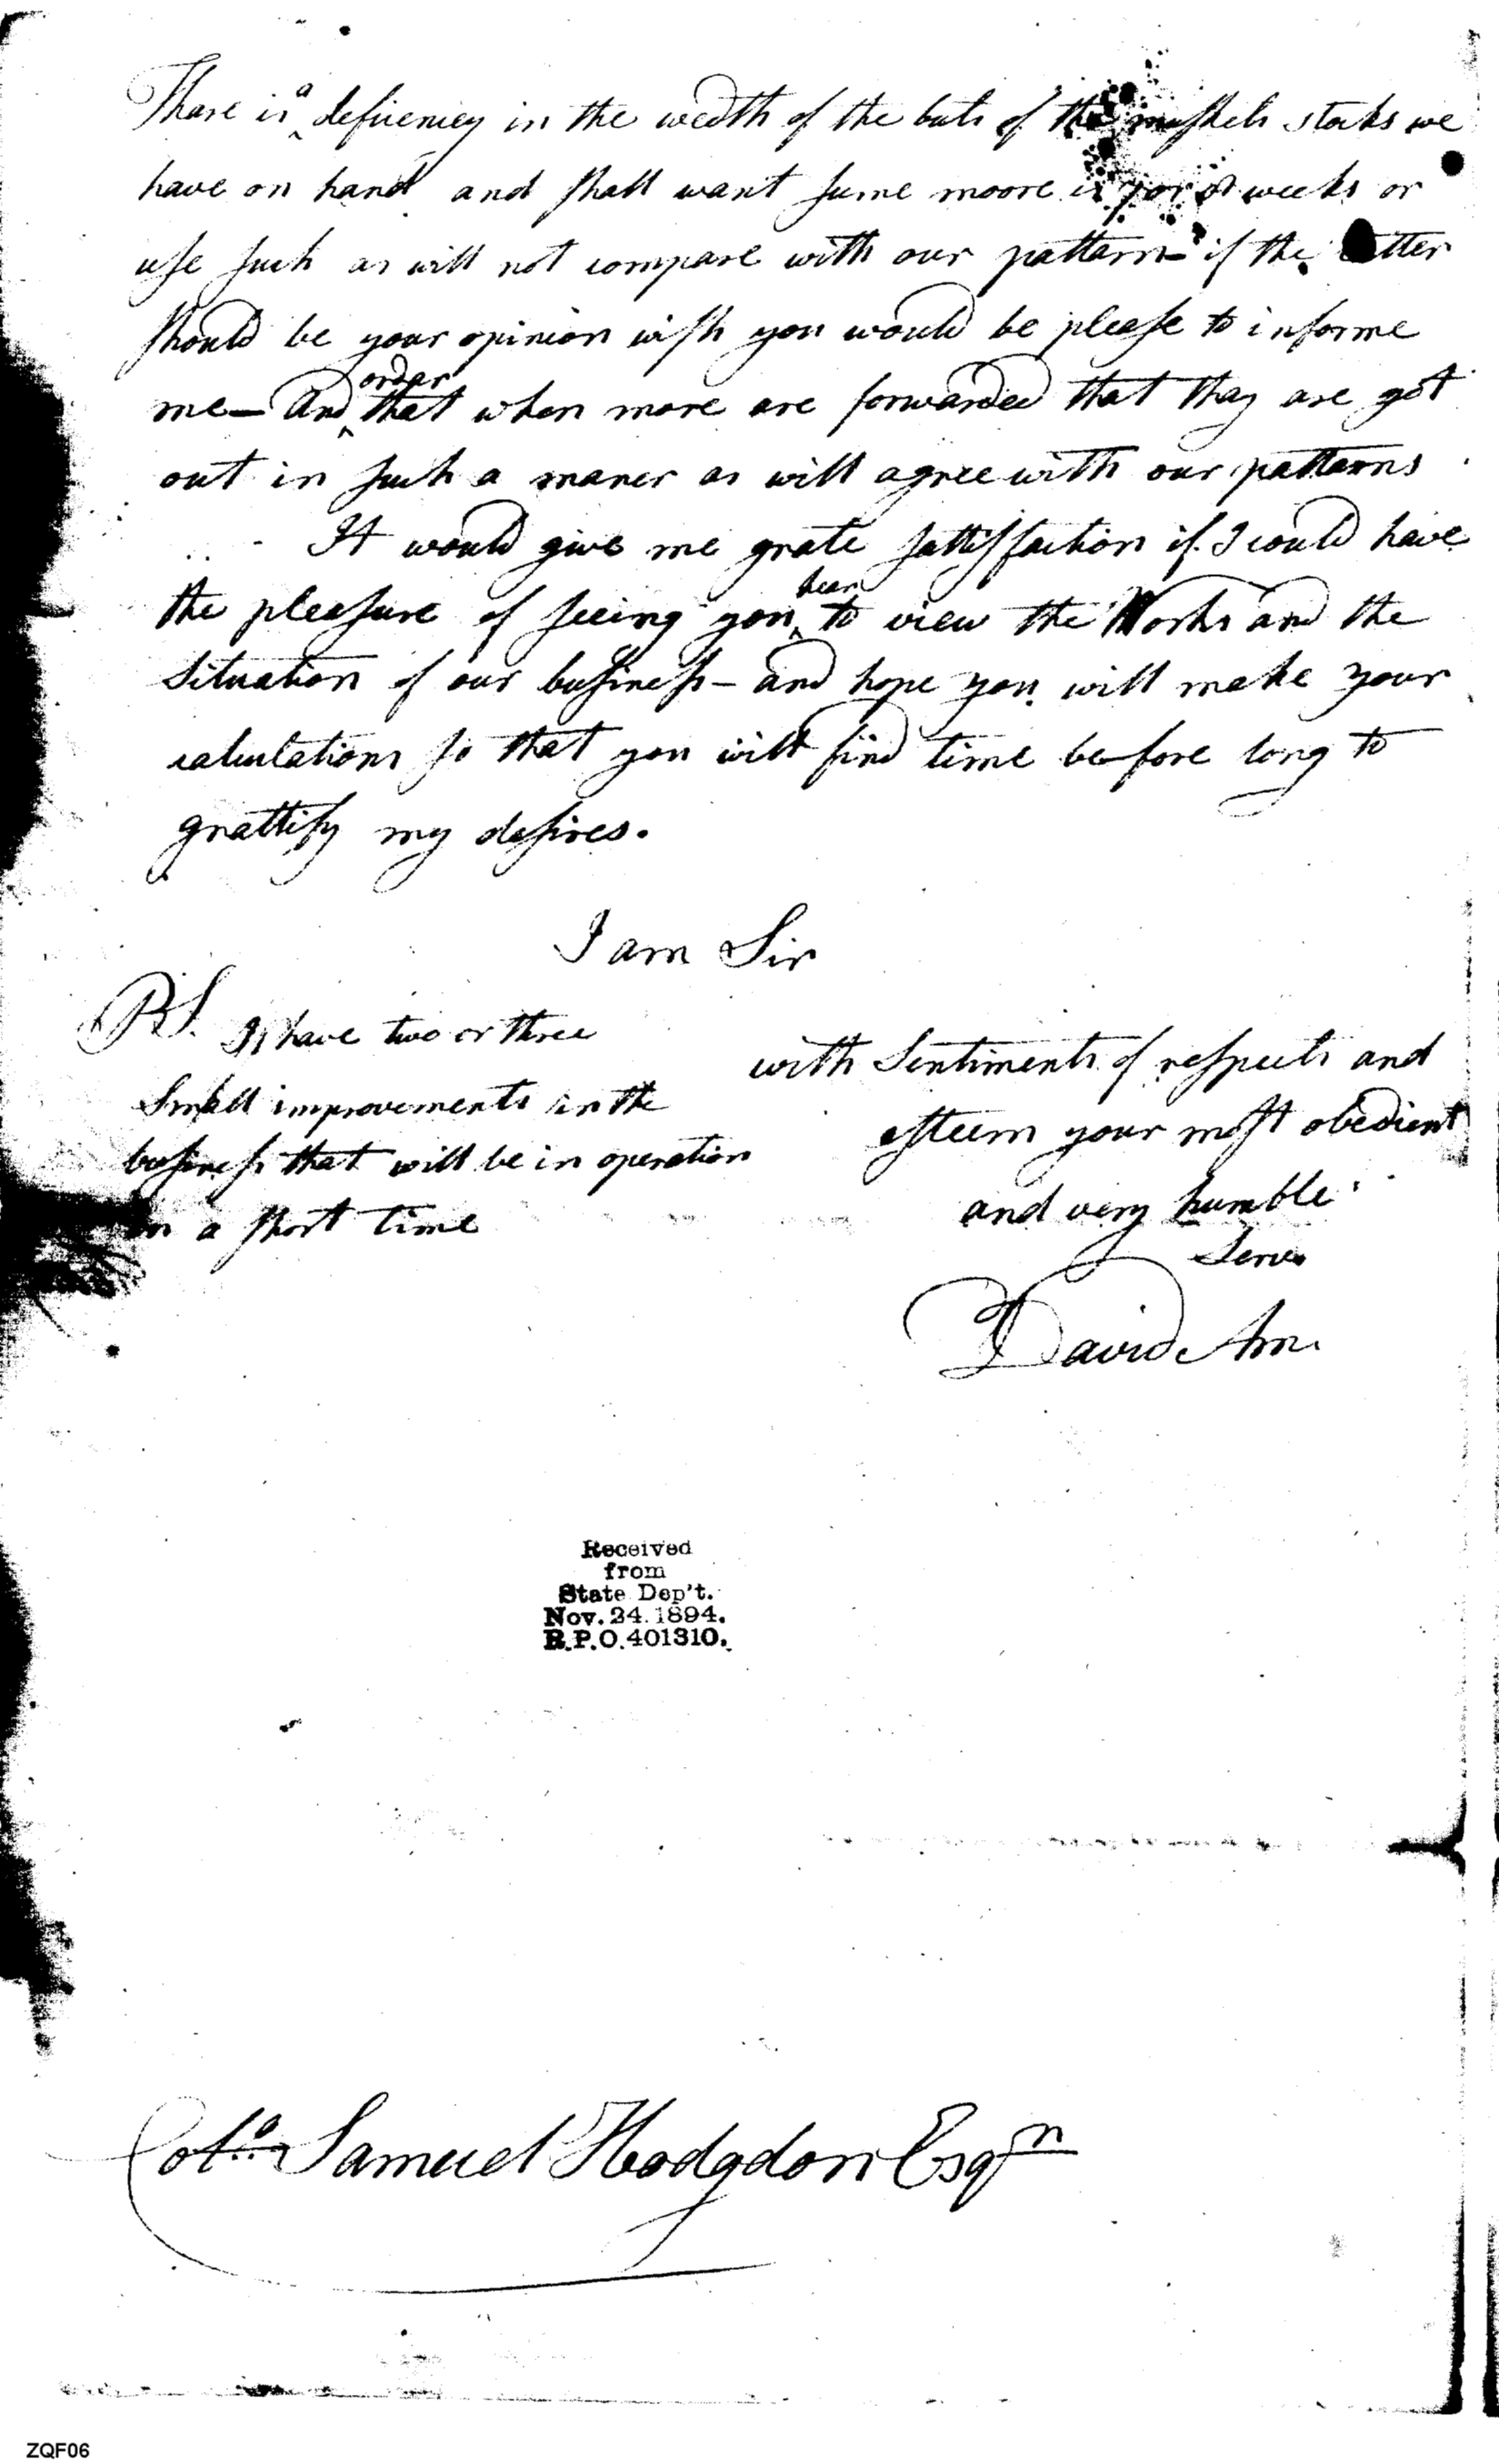 Thare is a deficiency in the wedth of the buts of the muskets stocks we
have on hand and shall want sume moore in weeks or
use such as will not compare with our pattarn if the latter
should be your opinion wish you would be please to informe
me — And order that when more are forwarded that thay are got
out in such a maner as will agree with our pattarns
It would give me grate sattisfaction if I could have
the pleasure of seeing you hear to view the Works and the
situation of our business – and hope you will make your
calculations so that you will find time before long to
grattify my desires.
I am Sir
with Sentiments of respects and
esteem your most obedient
and very humble
Serv
David Am
P.S. I have two or three
Small improvements in the
business that will be in operation
in a short time
Received
from
State Dep't.
Nov. 24. 1894.
R.P.O. 401310.
Colo Samuel Hodgdon Esqr
ZQF06